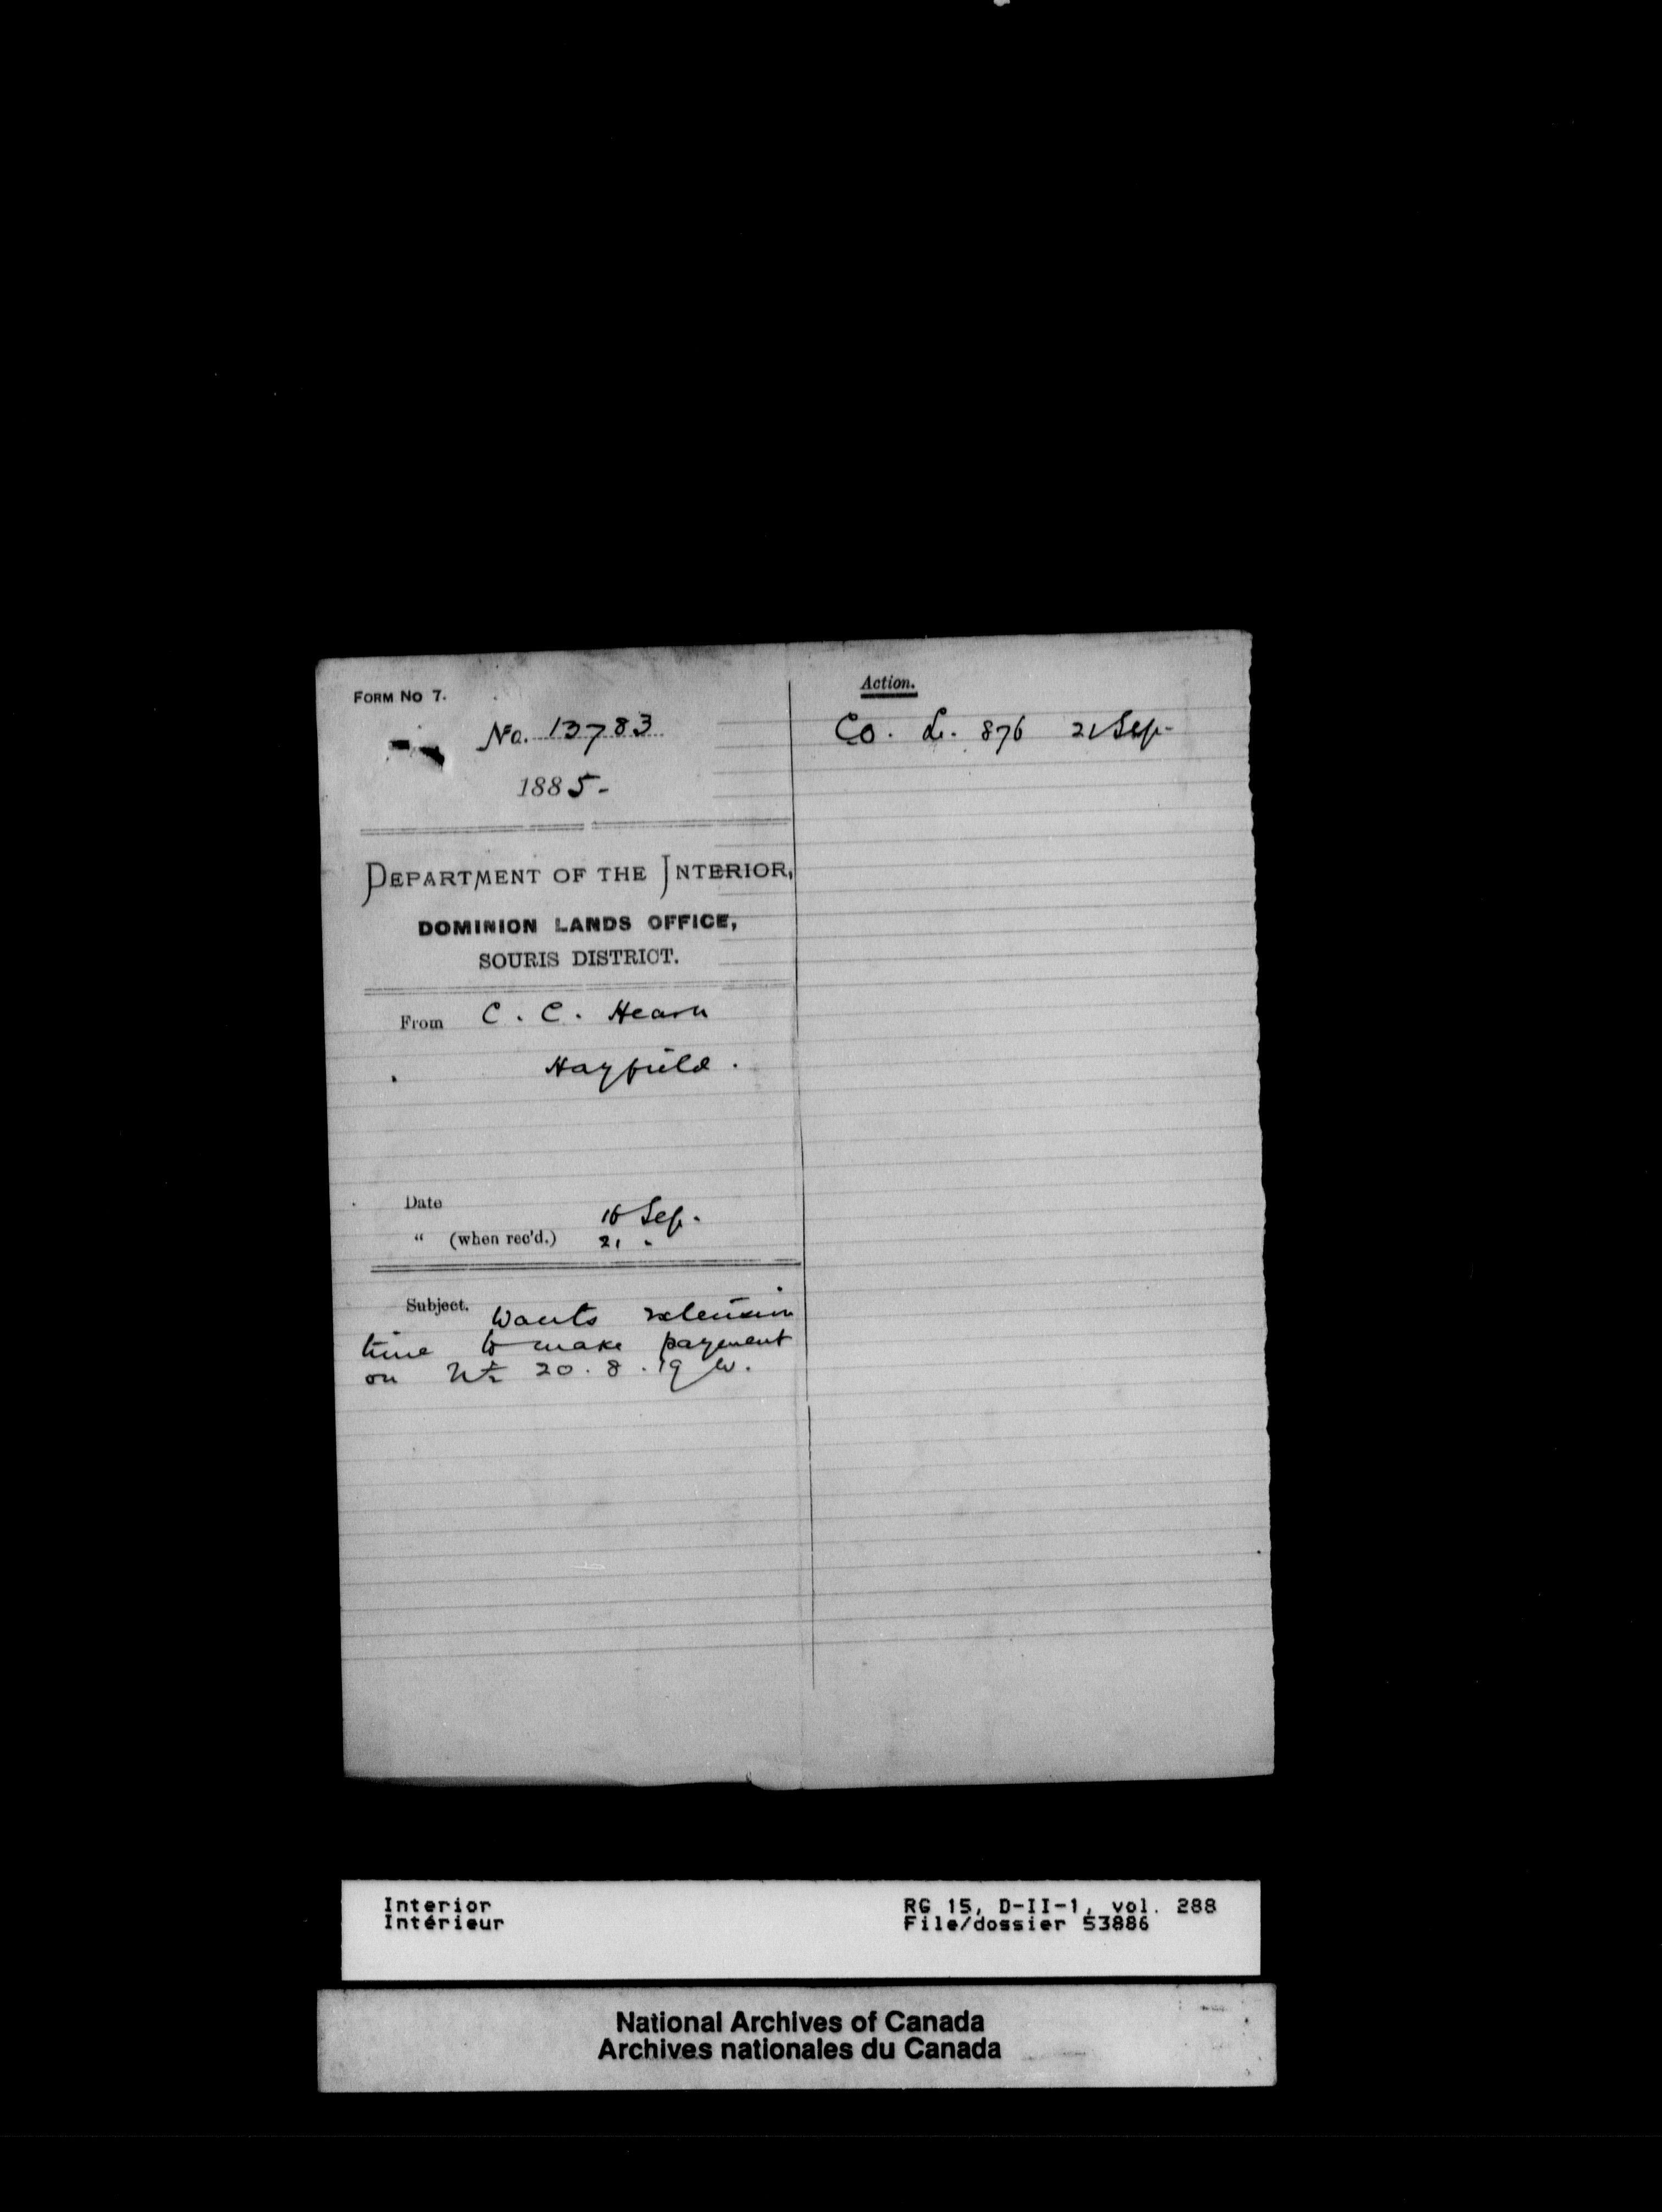 FORM NO 7.
No. 13783
1885-
DEPARTMENT OF THE INTERIOR,
DOMINION LANDS OFFICE,
SOURIS DISTRICT.
From C. C. Hearn
Hayfield.
Date 16 Sep.
" (when rec'd.) 21 "
Subject. Wants extension
time to make payment
on N½ 20.8.19 W.
Action.
Co. L. 876 21 Sep.
Interior
Intérieur
RG 15, D-II-1, vol. 288
File/dossier 53886
National Archives of Canada
Archives nationales du Canada